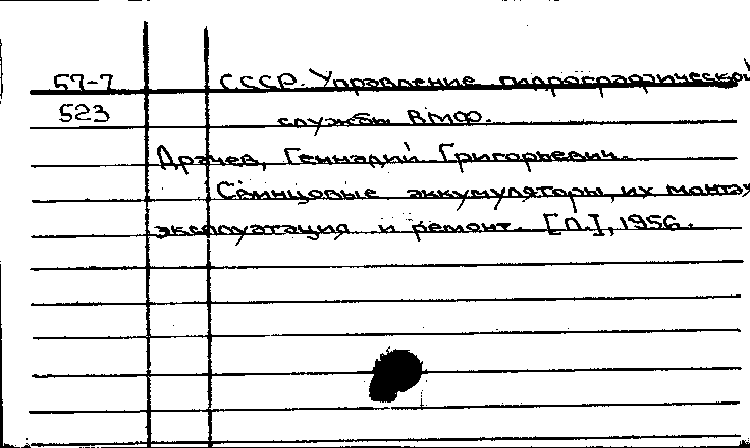 57-7 СССР. Управление гидрографической
523 службы ВМФ.
Драчев, Геннадий Григорьевич.
Свинцовые аккумуляторы, их монтаж
эксплуатация и ремонт. [Л.], 1956.